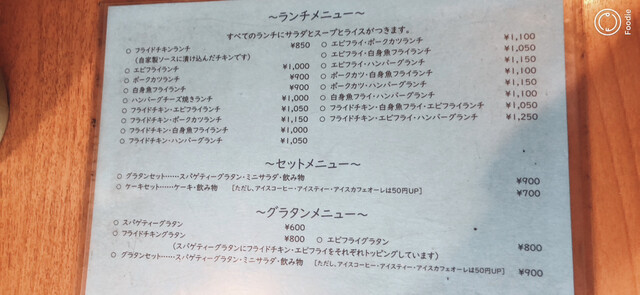 ～ランチメニュー～
すべてのランチにサラダとスープとライスがつきます。
○ フライドチキンランチ ¥850
(自家製ソースに漬け込んだチキンです)
○ エビフライランチ ¥1,000
○ ポークカツランチ ¥900
○ 白身魚フライランチ ¥900
○ ハンバーグチーズ焼きランチ ¥1,000
○ フライドチキン・エビフライランチ ¥1,050
○ フライドチキン・ポークカツランチ ¥1,150
○ フライドチキン・白身魚フライランチ ¥1,000
○ フライドチキン・ハンバーグランチ ¥1,050
○ エビフライ・ポークカツランチ ¥1,100
○ エビフライ・白身魚フライランチ ¥1,050
○ エビフライ・ハンバーグランチ ¥1,150
○ ポークカツ・白身魚フライランチ ¥1,100
○ ポークカツ・ハンバーグランチ ¥1,150
○ 白身魚フライ・ハンバーグランチ ¥1,100
○ フライドチキン・白身魚フライ・エビフライランチ ¥1,050
○ フライドチキン・エビフライ・ハンバーグランチ ¥1,250
～セットメニュー～
○ グラタンセット……スパゲティーグラタン・ミニサラダ・飲み物 ¥900
○ ケーキセット……ケーキ・飲み物 [ただし、アイスコーヒー・アイスティー・アイスカフェオーレは50円UP] ¥700
～グラタンメニュー～
○ スパゲティーグラタン ¥600
○ フライドチキングラタン ¥800
○ エビフライグラタン ¥800
(スパゲティーグラタンにフライドチキン・エビフライをそれぞれトッピングしています)
○ グラタンセット……スパゲティーグラタン・ミニサラダ・飲み物 [ただし、アイスコーヒー・アイスティー・アイスカフェオーレは50円UP] ¥900
Foodie